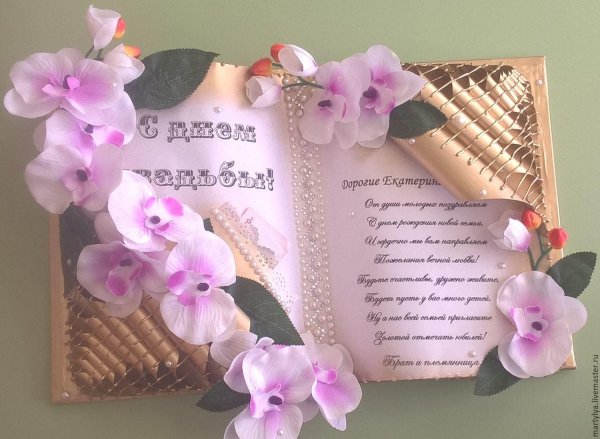 С днем
свадьбы!
Дорогие Екатерин
От души молодых поздравляем
С днем рождения новой семьи,
И сердечно мы вам направляем
Пожелания вечной любви!
Будьте счастливы, дружно живите,
Будет пусть у вас много детей,
Ну а нас всей семьей пригласите
Золотой отмечать юбилей!
Брат и племянница
martylya.livemaster.ru